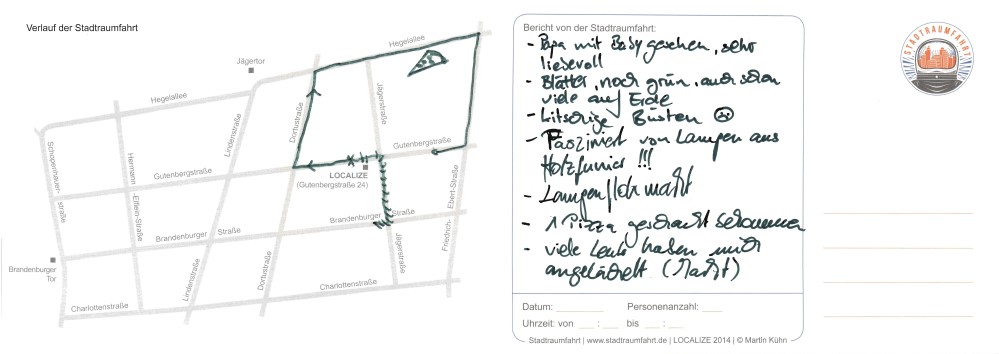 Verlauf der Stadtraumfahrt
Hegelallee
Jägertor
Hegelallee
Jägerstraße
Dortustraße
Lindenstraße
Gutenbergstraße
Schopenhauer-
straße
Hermann
-Elflein-Straße
Gutenbergstraße
LOCALIZE
(Gutenbergstraße 24)
Ebert-Straße
Friedrich-
Brandenburger Straße
Brandenburger Straße
Brandenburger
Tor
Jägerstraße
Lindenstraße
Dortustraße
Charlottenstraße
Charlottenstraße
Bericht von der Stadtraumfahrt:
- Papa mit Baby gesehen, sehr
liebevoll
- Blätter, noch grün, auch schon
viele auf Erde
- Büsten ☹
- Fasziniert von Lampen aus
Holzfunier !!!
- Lampen
- 1 Pizza geschenkt bekommen
- viele Leute haben mich
angelächelt (Markt)
Datum: Personenanzahl:
Uhrzeit: von : bis :
Stadtraumfahrt | www.stadtraumfahrt.de | LOCALIZE 2014 | © Martin Kühn
STADTRAUMFAHRT